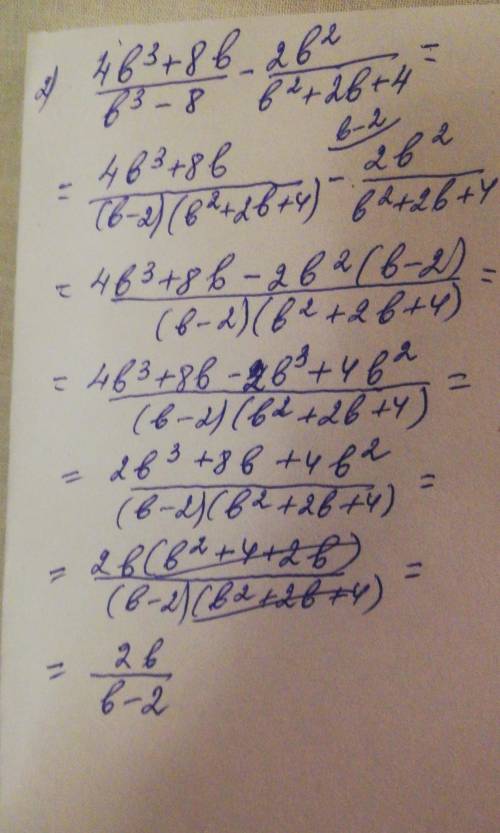 2) (4b³+8b)/(b³-8) - 2b²/(b²+2b+4) =
= (4b³+8b)/((b-2)(b²+2b+4)) - b-2 2b²/(b²+2b+4)
= (4b³+8b-2b²(b-2))/((b-2)(b²+2b+4)) =
= (4b³+8b-2b³+4b²)/((b-2)(b²+2b+4)) =
= (2b³+8b+4b²)/((b-2)(b²+2b+4)) =
= (2b(b²+4+2b))/((b-2)(b²+2b+4)) =
= 2b/(b-2)